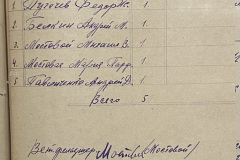 1. Пугачев Федор
2. Белкин Андрей М. 1
3. Мостовой Михаил В. 1
4. Мостовая Мария 1
5. Павличенко Андрей Д. 1
Всего 5
Ветфельдшер Мостовой /Мостовой/